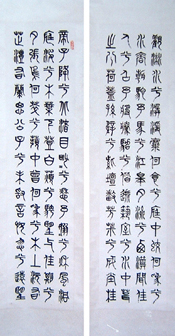 帝子降兮北渚目眇眇兮愁予嫋嫋兮秋風洞
庭波兮木葉下登白薠兮騁望與佳期兮
夕張鳥何萃兮蘋中罾何為兮木上沅有
芷澧有蘭思公子兮未敢言荒忽兮遠望
觀流水兮潺湲麋何食兮庭中蛟何為兮
水裔朝馳余馬兮江皋夕濟兮西澨聞佳
人兮召予將騰駕兮偕逝築室兮水中葺
之兮荷蓋蓀壁兮紫壇播芳椒兮成堂桂